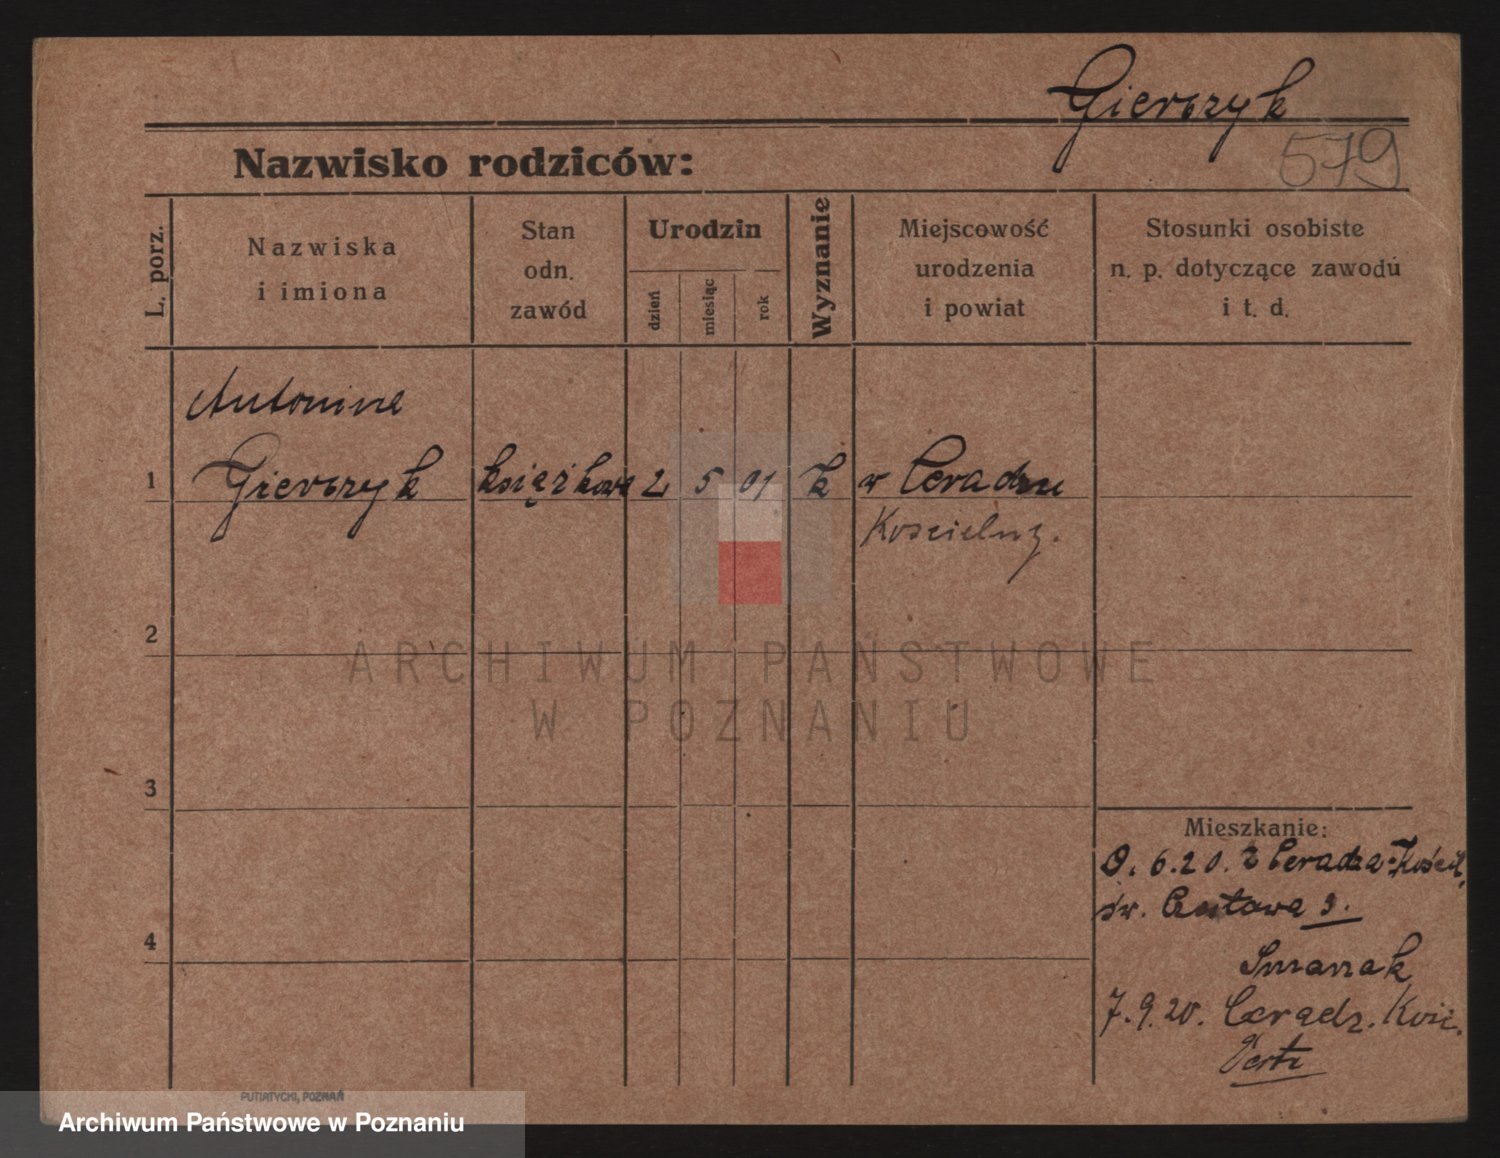 Gierczyk
579
Nazwisko rodziców:
L. porz.
Nazwiska
i imiona
Stan
odn.
zawód
Urodzin
dzień
miesiąc
rok
Wyznanie
Miejscowość
urodzenia
i powiat
Stosunki osobiste
n. p. dotyczące zawodu
i t. d.
Antonina
1 Gierczyk książkowa 2 5 01 k w Ceradzu
Kościelny.
2
ARCHIWUM PAŃSTWOWE
W POZNANIU
3
Mieszkanie:
9. 6.20. z Ceradza-Kości.
św. 3.
4
7.9.20. Ceradz. Kośc.
PUTIATYCKI, POZNAŃ
Archiwum Państwowe w Poznaniu